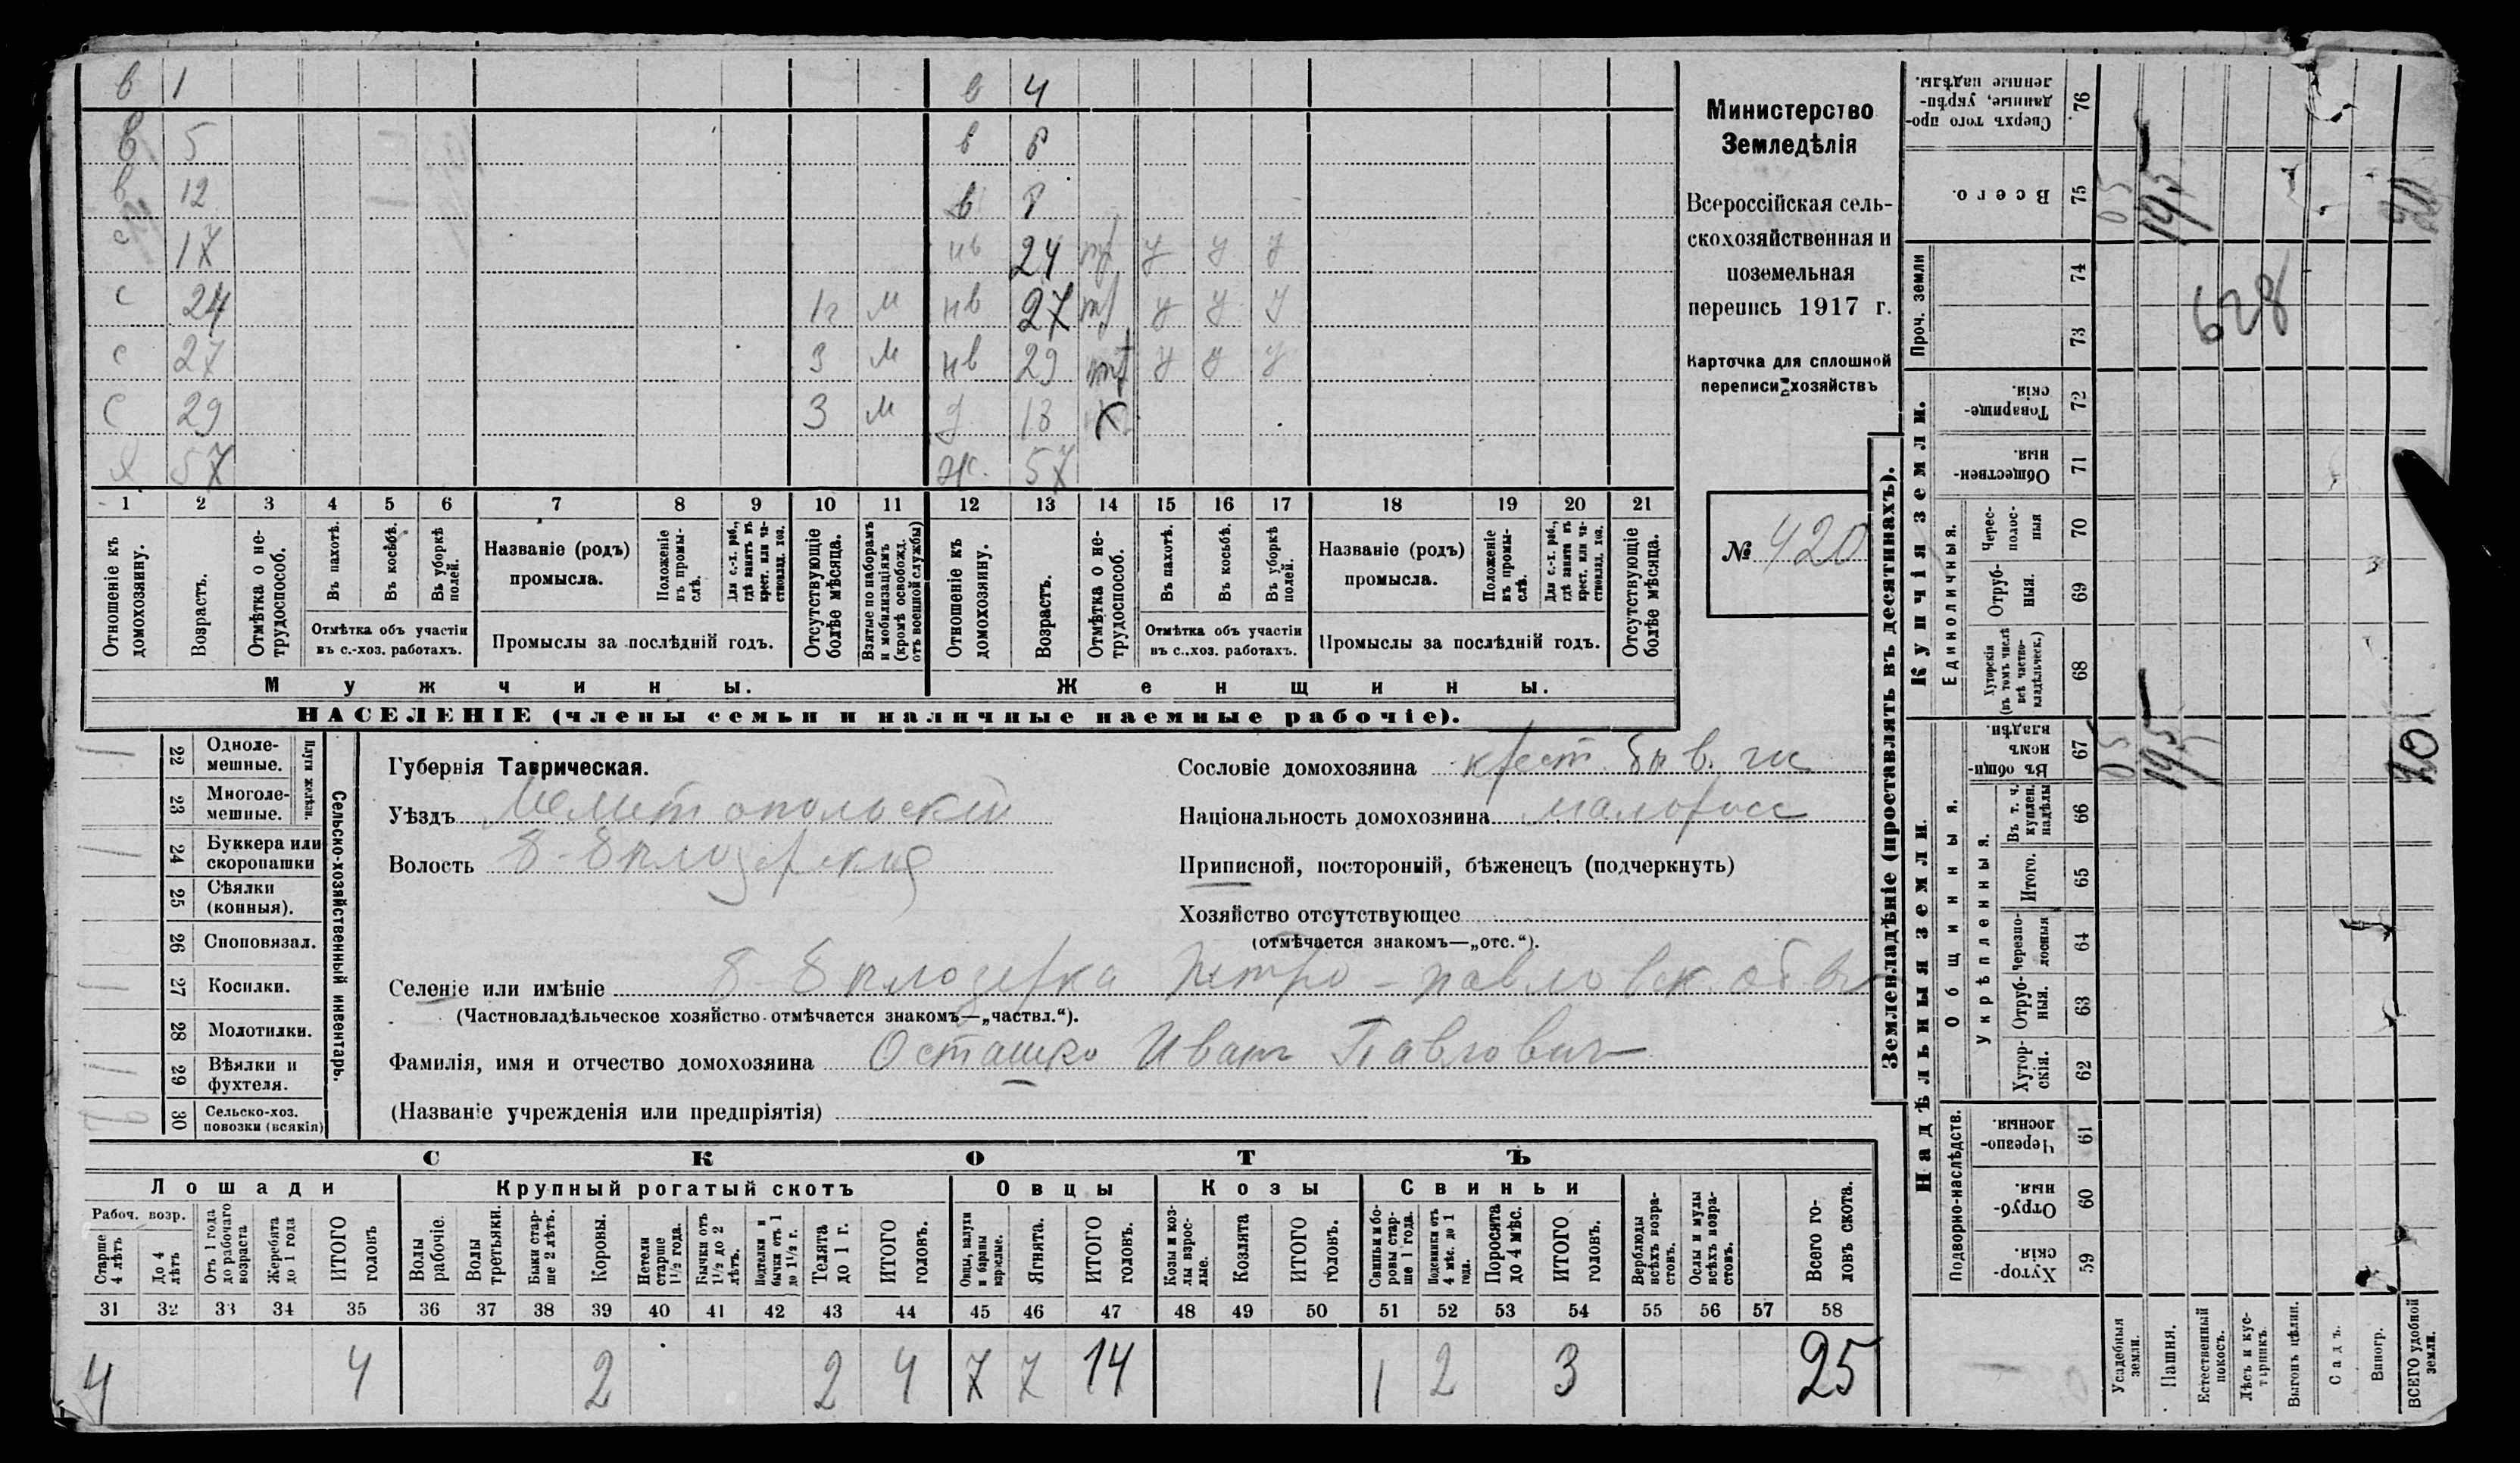 в 1 в 4
в 5 в 6
в 12 в 8
с 17 нв 24 у у у
с 24 1г м нв 27 у у у
с 27 3 м нв 29 у у у
с 29 3 м д 18
57 ж. 57
1 2 3 4 5 6 7 8 9 10 11 12 13 14 15 16 17 18 19 20 21
Отношеніе къ домохозяину.
Возрастъ.
Отмѣтка о нетрудоспособ.
Въ пахотѣ.
Въ косьбѣ.
Въ уборкѣ полей.
Отмѣтка объ участіи въ с.-хоз. работахъ.
Названіе (родъ) промысла.
Положеніе въ промыслѣ.
Для с.-х. раб., гдѣ занятъ въ крест. или частновлад. хоз.
Промыслы за послѣдній годъ.
Отсутствующіе болѣе мѣсяца.
Взятые по наборамъ и мобилизаціямъ (кромѣ освобожд. отъ военной службы)
Отношеніе къ домохозяину.
Возрастъ.
Отмѣтка о нетрудоспособ.
Въ пахотѣ.
Въ косьбѣ.
Въ уборкѣ полей.
Отмѣтка объ участіи въ с.-хоз. работахъ.
Названіе (родъ) промысла.
Положеніе въ промыслѣ.
Для с.-х. раб., гдѣ занята въ крест. или частновлад. хоз.
Промыслы за послѣдній годъ.
Отсутствующіе болѣе мѣсяца.
Мужчины.
Женщины.
НАСЕЛЕНІЕ (члены семьи и наличные наемные рабочіе).
Министерство
Земледѣлія
Всероссійская сель-
скохозяйственная и
поземельная
перепись 1917 г.
Карточка для сплошной
переписи хозяйствъ
№ 420
22 Одноле-мешные.
23 Многоле-мешные.
Плуги желѣзн.
24 Буккера или скоропашки
25 Сѣялки (конныя).
26 Споповязал.
27 Косилки.
28 Молотилки.
29 Вѣялки и фухтеля.
30 Сельско-хоз. повозки (всякія)
Сельско-хозяйственный инвентарь.
Губернія Таврическая.
Уѣздъ Мелитопольскій
Волость Б-Бѣлозерская
Сословіе домохозяина крест.
Національность домохозяина малоросс
Приписной, посторонній, бѣженецъ (подчеркнуть)
Хозяйство отсутствующее
(отмѣчается знакомъ—„отс.“).
Селеніе или имѣніе Б-Бѣлозерка Петро-павловск.
(Частновладѣльческое хозяйство отмѣчается знакомъ—„частвл.“).
Фамилія, имя и отчество домохозяина Осташко Иванъ Павловичъ
(Названіе учрежденія или предпріятія)
СКОТЪ
Лошади
Крупный рогатый скотъ
Овцы
Козы
Свиньи
Рабоч. возр.
Старше 4 лѣтъ
До 4 лѣтъ
Отъ 1 года до рабочаго возраста
Жеребята до 1 года
ИТОГО головъ
Волы рабочіе.
Волы третьяки.
Быки старше 2 лѣтъ.
Коровы.
Нетели старше 1½ года.
Бычки отъ 1½ до 2 лѣтъ.
Подтелки и бычки отъ 1 до 1½ г.
Телята до 1 г.
ИТОГО головъ.
Овцы, валухи и бараны взрослые.
Ягнята.
ИТОГО головъ.
Козы и козлы взрослые.
Козлята
ИТОГО головъ.
Свиньи и боровы старше 1 года.
Подсвинки отъ 4 мѣс. до 1 года.
Поросята до 4 мѣс.
ИТОГО головъ.
Верблюды всѣхъ возрастовъ.
Ослы и мулы всѣхъ возрастовъ.
Всего головъ скота.
31 32 33 34 35 36 37 38 39 40 41 42 43 44 45 46 47 48 49 50 51 52 53 54 55 56 57 58
4 4 2 2 4 7 7 14 1 2 3 25
Землевладѣніе (проставлять въ десятинахъ).
Купчія земли.
Надѣльныя земли.
Сверхъ того проданные, укрѣпленные надѣлы. 76
Всего. 75
Проч. земли 74 73
Товарищескія. 72
Общественныя. 71
Единоличныя.
Чересполосныя 70
Отрубныя. 69
Хуторскія (въ томъ числѣ всѣ частновладѣльческ.) 68
Общинныя.
Въ общинномъ владѣн. 67
Укрѣпленныя.
Въ т. ч. куплен. надѣлы 66
Итого. 65
Черезполосныя 64
Отрубныя. 63
Хуторскія. 62
Подворно-наслѣдств.
Черезполосныя. 61
Отрубныя. 60
Хуторскія 59
Усадебныя земли.
Пашня.
Естественный покосъ.
Лѣсъ и кустарникъ.
Выгонъ цѣлин.
Садъ.
Виногр.
ВСЕГО удобной земли.
05 195
628
05 195
20